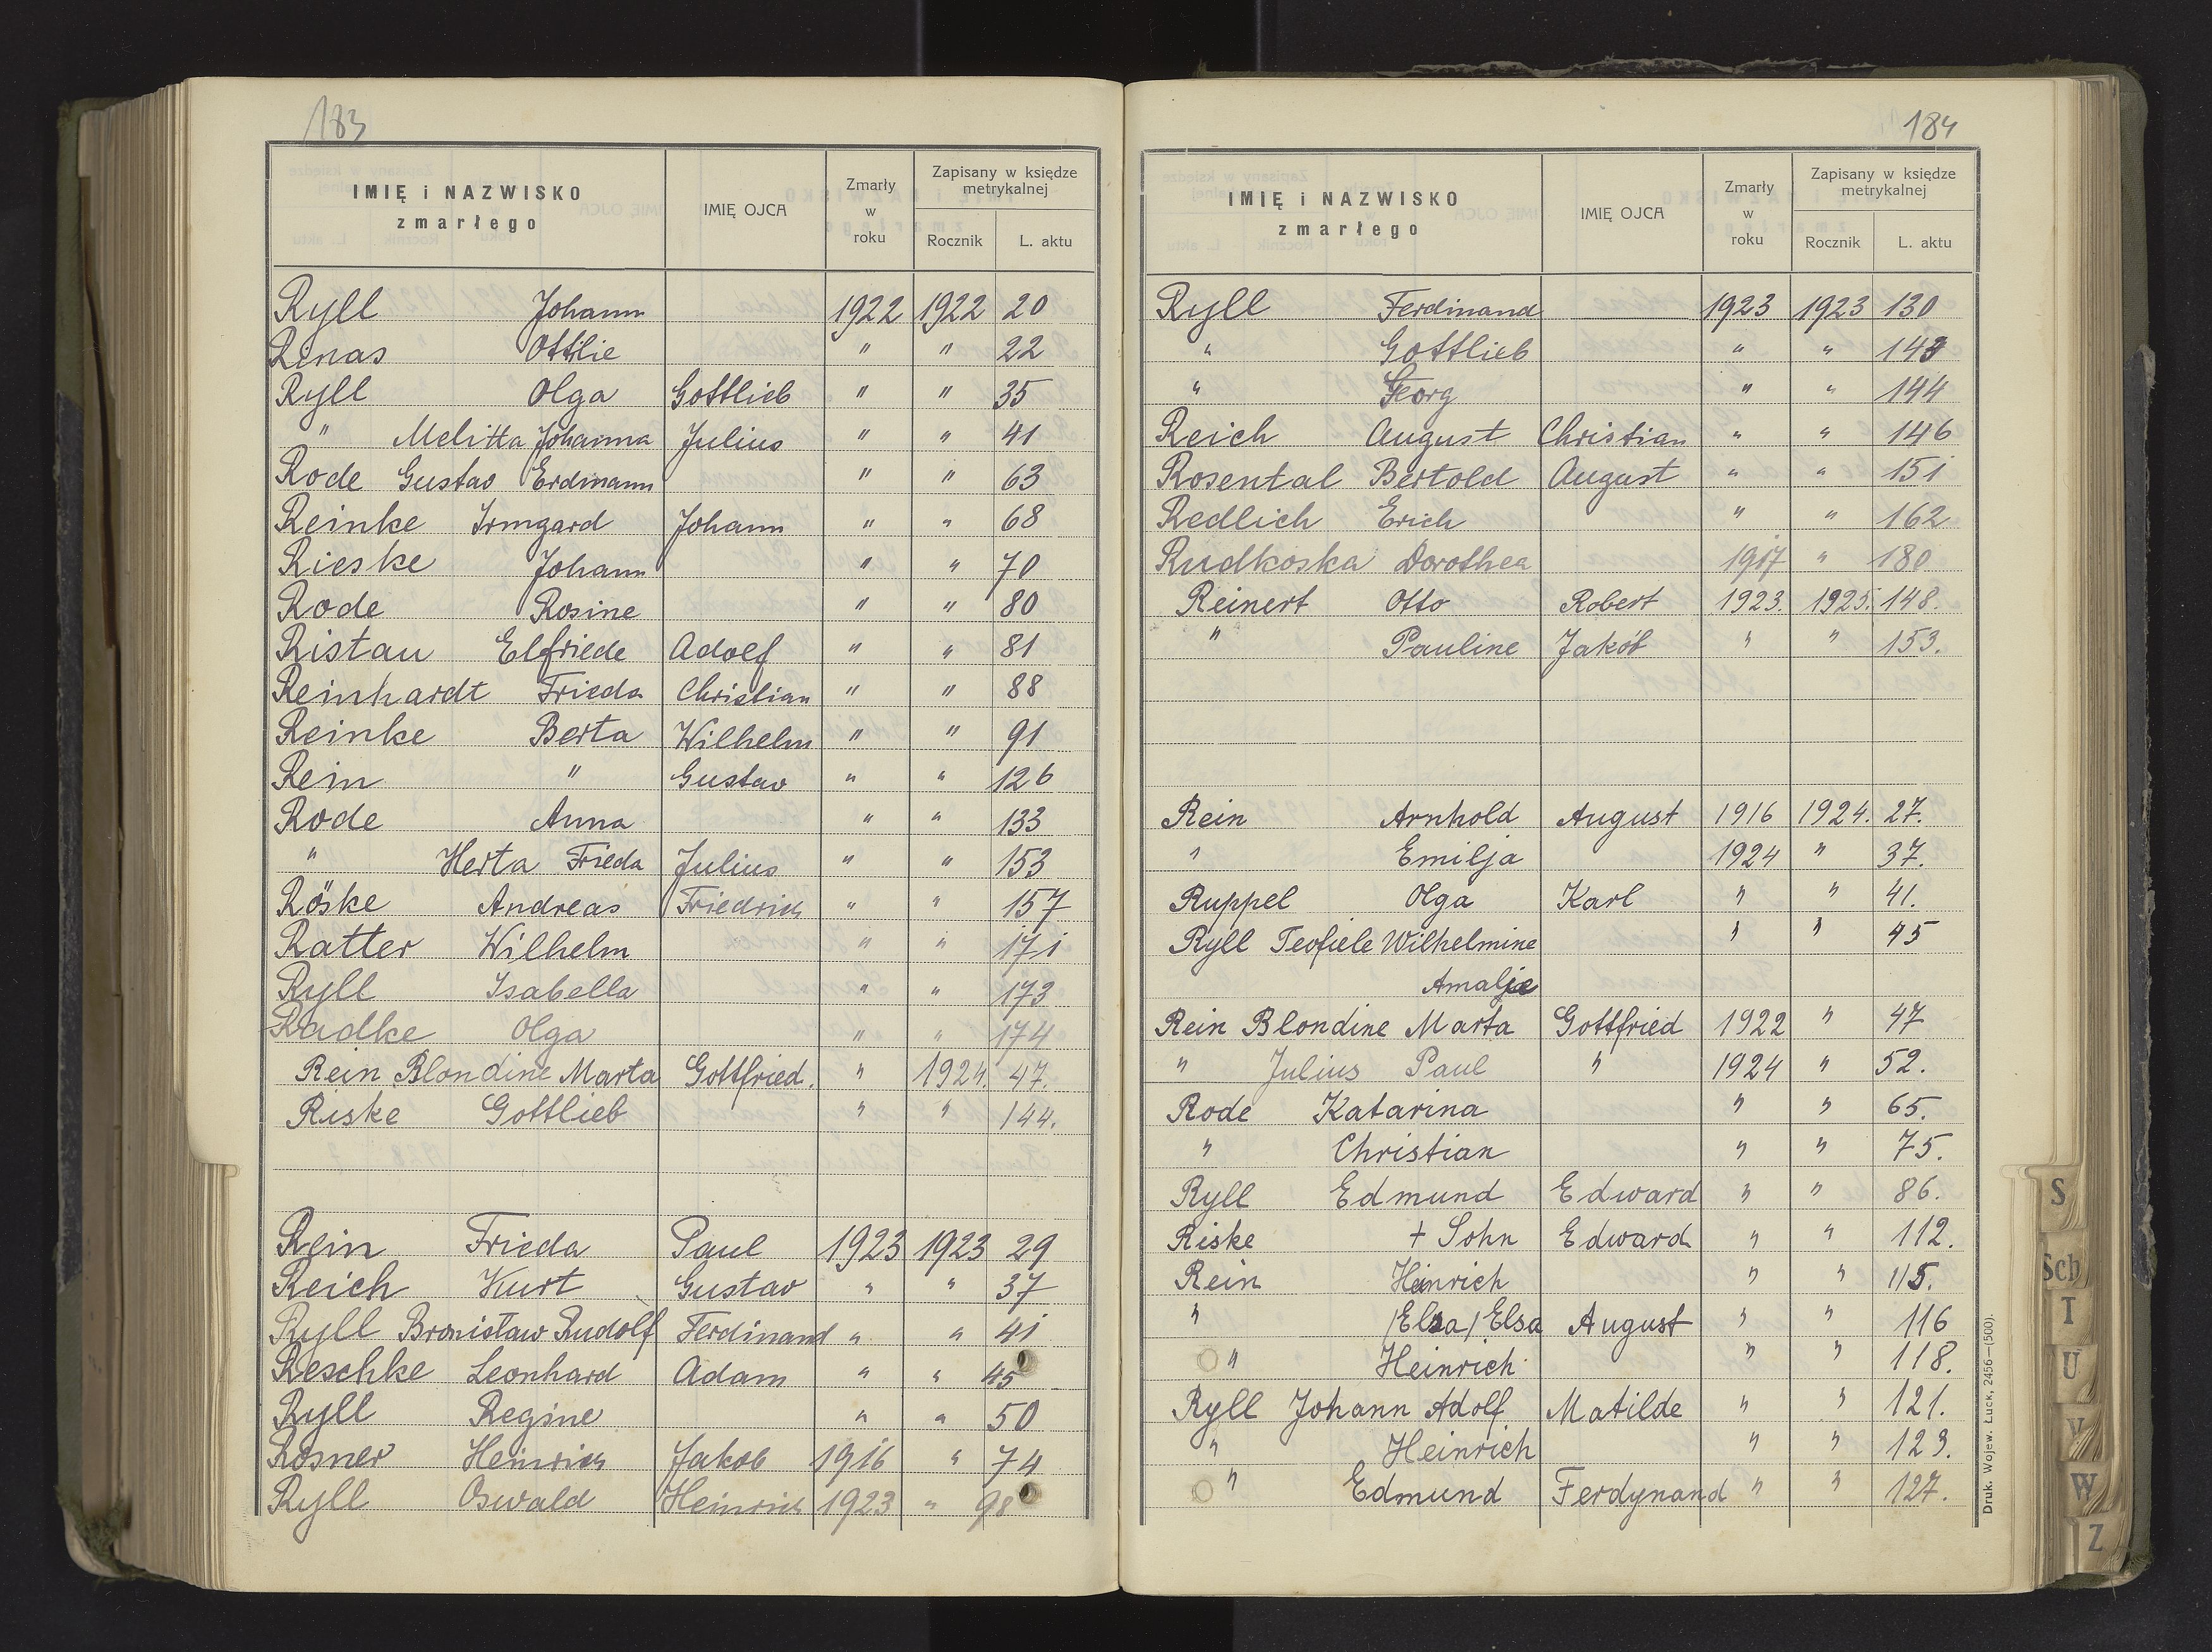 183
IMIĘ i NAZWISKO zmarłego IMIĘ OJCA Zmarły w roku Zapisany w księdze metrykalnej Rocznik L. aktu
Ryll Johann 1922 1922 20
Renas Ottilie " " 22
Ryll Olga Gottlieb " " 35
" Melitta Johanna Julius " " 41
Rode Gustav Erdmann " " 63
Reinke Irmgard Johann " " 68
Rieske Johann " " 70
Rode Rosine " " 80
Ristau Elfriede Adolf " " 81
Reinhardt Frieda Christian " " 88
Reinke Berta Wilhelm " " 91
Rein " Gustav " " 126
Rode Anna " " 133
" Herta Frieda Julius " " 153
Röske Andreas Friedrich " " 157
Ratter Wilhelm " " 171
Ryll Isabella " " 173
Radke Olga " " 174
Rein Blondine Marta Gottfried. " 1924. 47.
Riske Gottlieb " " 144.
Rein Frieda Paul 1923 1923 29
Reich Kurt Gustav " " 37
Ryll Bronisław Rudolf Ferdinand " " 41
Reschke Leonhard Adam " " 45
Ryll Regine " " 50
Rosner Heinrich Jakob 1916 " 74
Ryll Oswald Heinrich 1923 " 98
184
IMIĘ i NAZWISKO zmarłego IMIĘ OJCA Zmarły w roku Zapisany w księdze metrykalnej Rocznik L. aktu
Ryll Ferdinand 1923 1923 130
" Gottlieb " " 143
" Georg " " 144
Reich August Christian " " 146
Rosental Bertold August " " 151
Redlich Erich " " 162
Rudkoska Dorothea 1917 " 180
Reinert Otto Robert 1923. 1925. 148.
" Pauline Jakób " " 153.
Rein Arnhold August 1916 1924. 27.
" Emilja 1924 " 37.
Ruppel Olga Karl " " 41.
Ryll Teofiele Wilhelmine " " 45
Amalje
Rein Blondine Marta Gottfried 1922 " 47
" Julius Paul " 1924 " 52.
Rode Katarina " " 65.
" Christian " " 75.
Ryll Edmund Edward " " 86.
Riske + Sohn Edward " " 112.
Rein Heinrich " " 115.
" /Elsa/ Elsa August " " 116
" Heinrich " " 118.
Ryll Johann Adolf Matilde " " 121.
" Heinrich " " 123.
" Edmund Ferdynand " " 127.
Druk. Wojew. Łuck, 2456—(500).
S
Sch
T
U
V
W
Z